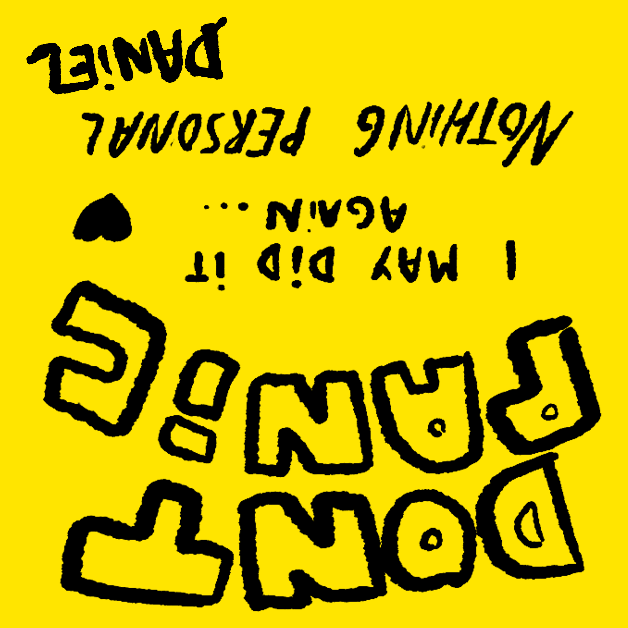 DONT
PANiC
I MAY DiD iT
AGAiN...
NOTHiNG PERSONAL
DANiEL